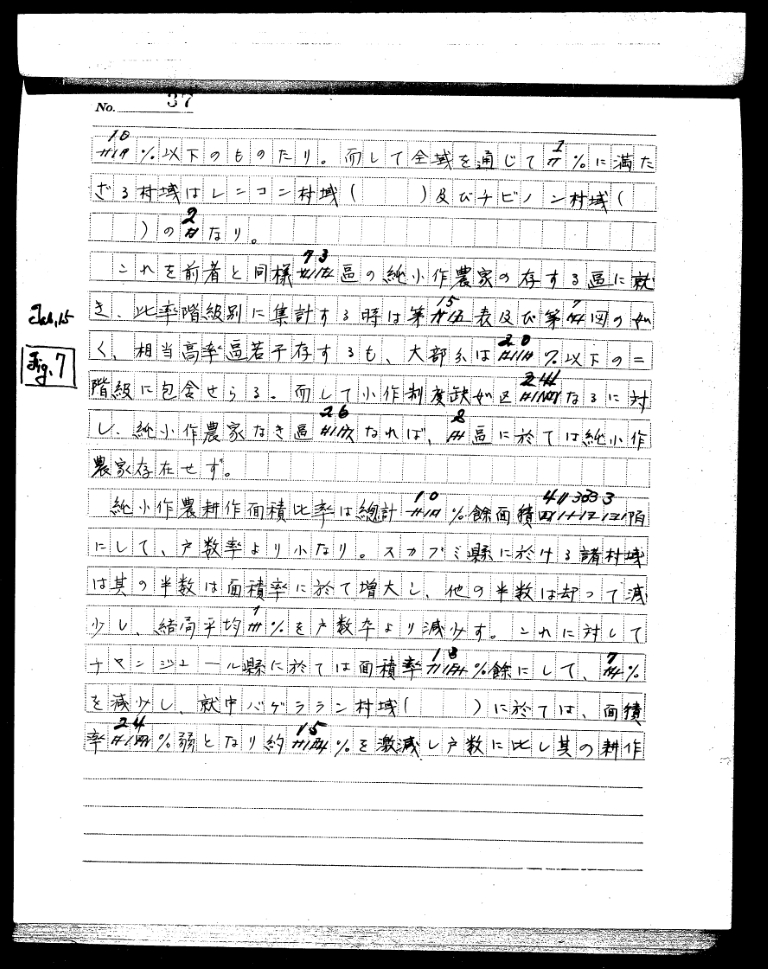 No. 37
10 %以下のものたり。而して全域を通じて 1 %に満た
ざる村域はレンコン村域(　　)及びチビノン村域(
　　)の 2 なり。
これを前者と同様 73 區の純小作農家の存する區に就
Tab.15
き、比率階級別に集計する時は第 15 表及び第 7 図の如
Fig.7
く、相当高率區若干存するも、大部分は 20 %以下の二
階級に包含せらる。而して小作制度缺如区 24 なるに対
し、純小作農家なき區 26 なれば、2 區に於ては純小作
農家存在せず。
純小作農耕作面積比率は總計 10 %餘面積 41,333 陌
にして、戸数率より小なり。スカブミ縣に於ける諸村域
は其の半数は面積率に於て増大し、他の半数は却って減
少し、結局平均 1 %を戸数率より減少す。これに対して
チヤンジユール縣に於ては面積率 18 %餘にして、7 %
を減少し、就中バゲララン村域(　　)に於ては、面積
率 24 %弱となり約 15 %を激減し戸数に比し其の耕作